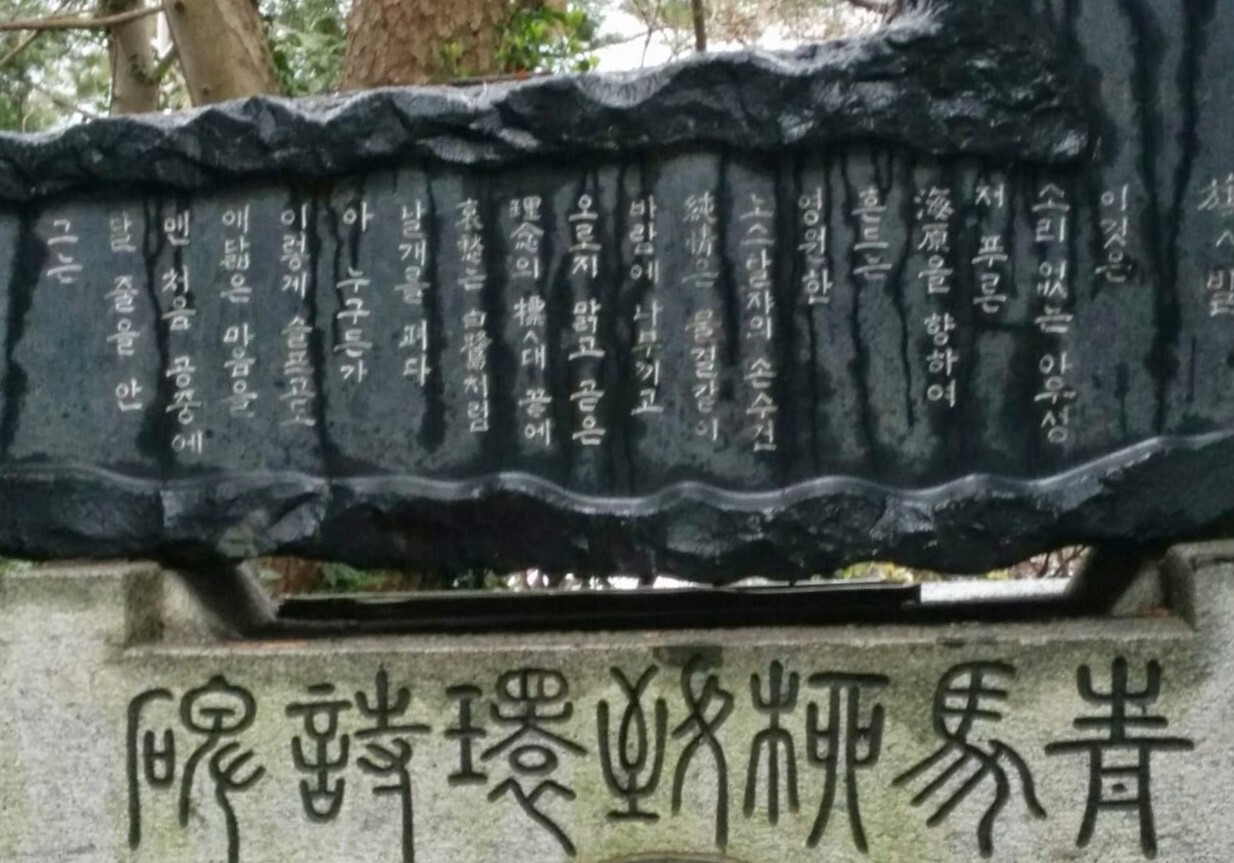 旗ㅅ발
이것은
소리 없는 아우성
저 푸른
海原을 향하여
흔드는
영원한
노스탈쟈의 손수건
純情은 물결같이
바람에 나부끼고
오로지 맑고 곧은
理念의 標ㅅ대 끝에
哀愁는 白鷺처럼
날개를 펴다
아 누구든가
이렇게 슬프고도
애닯은 마음을
맨 처음 공중에
달 줄을 안
그는
靑馬柳致環詩碑